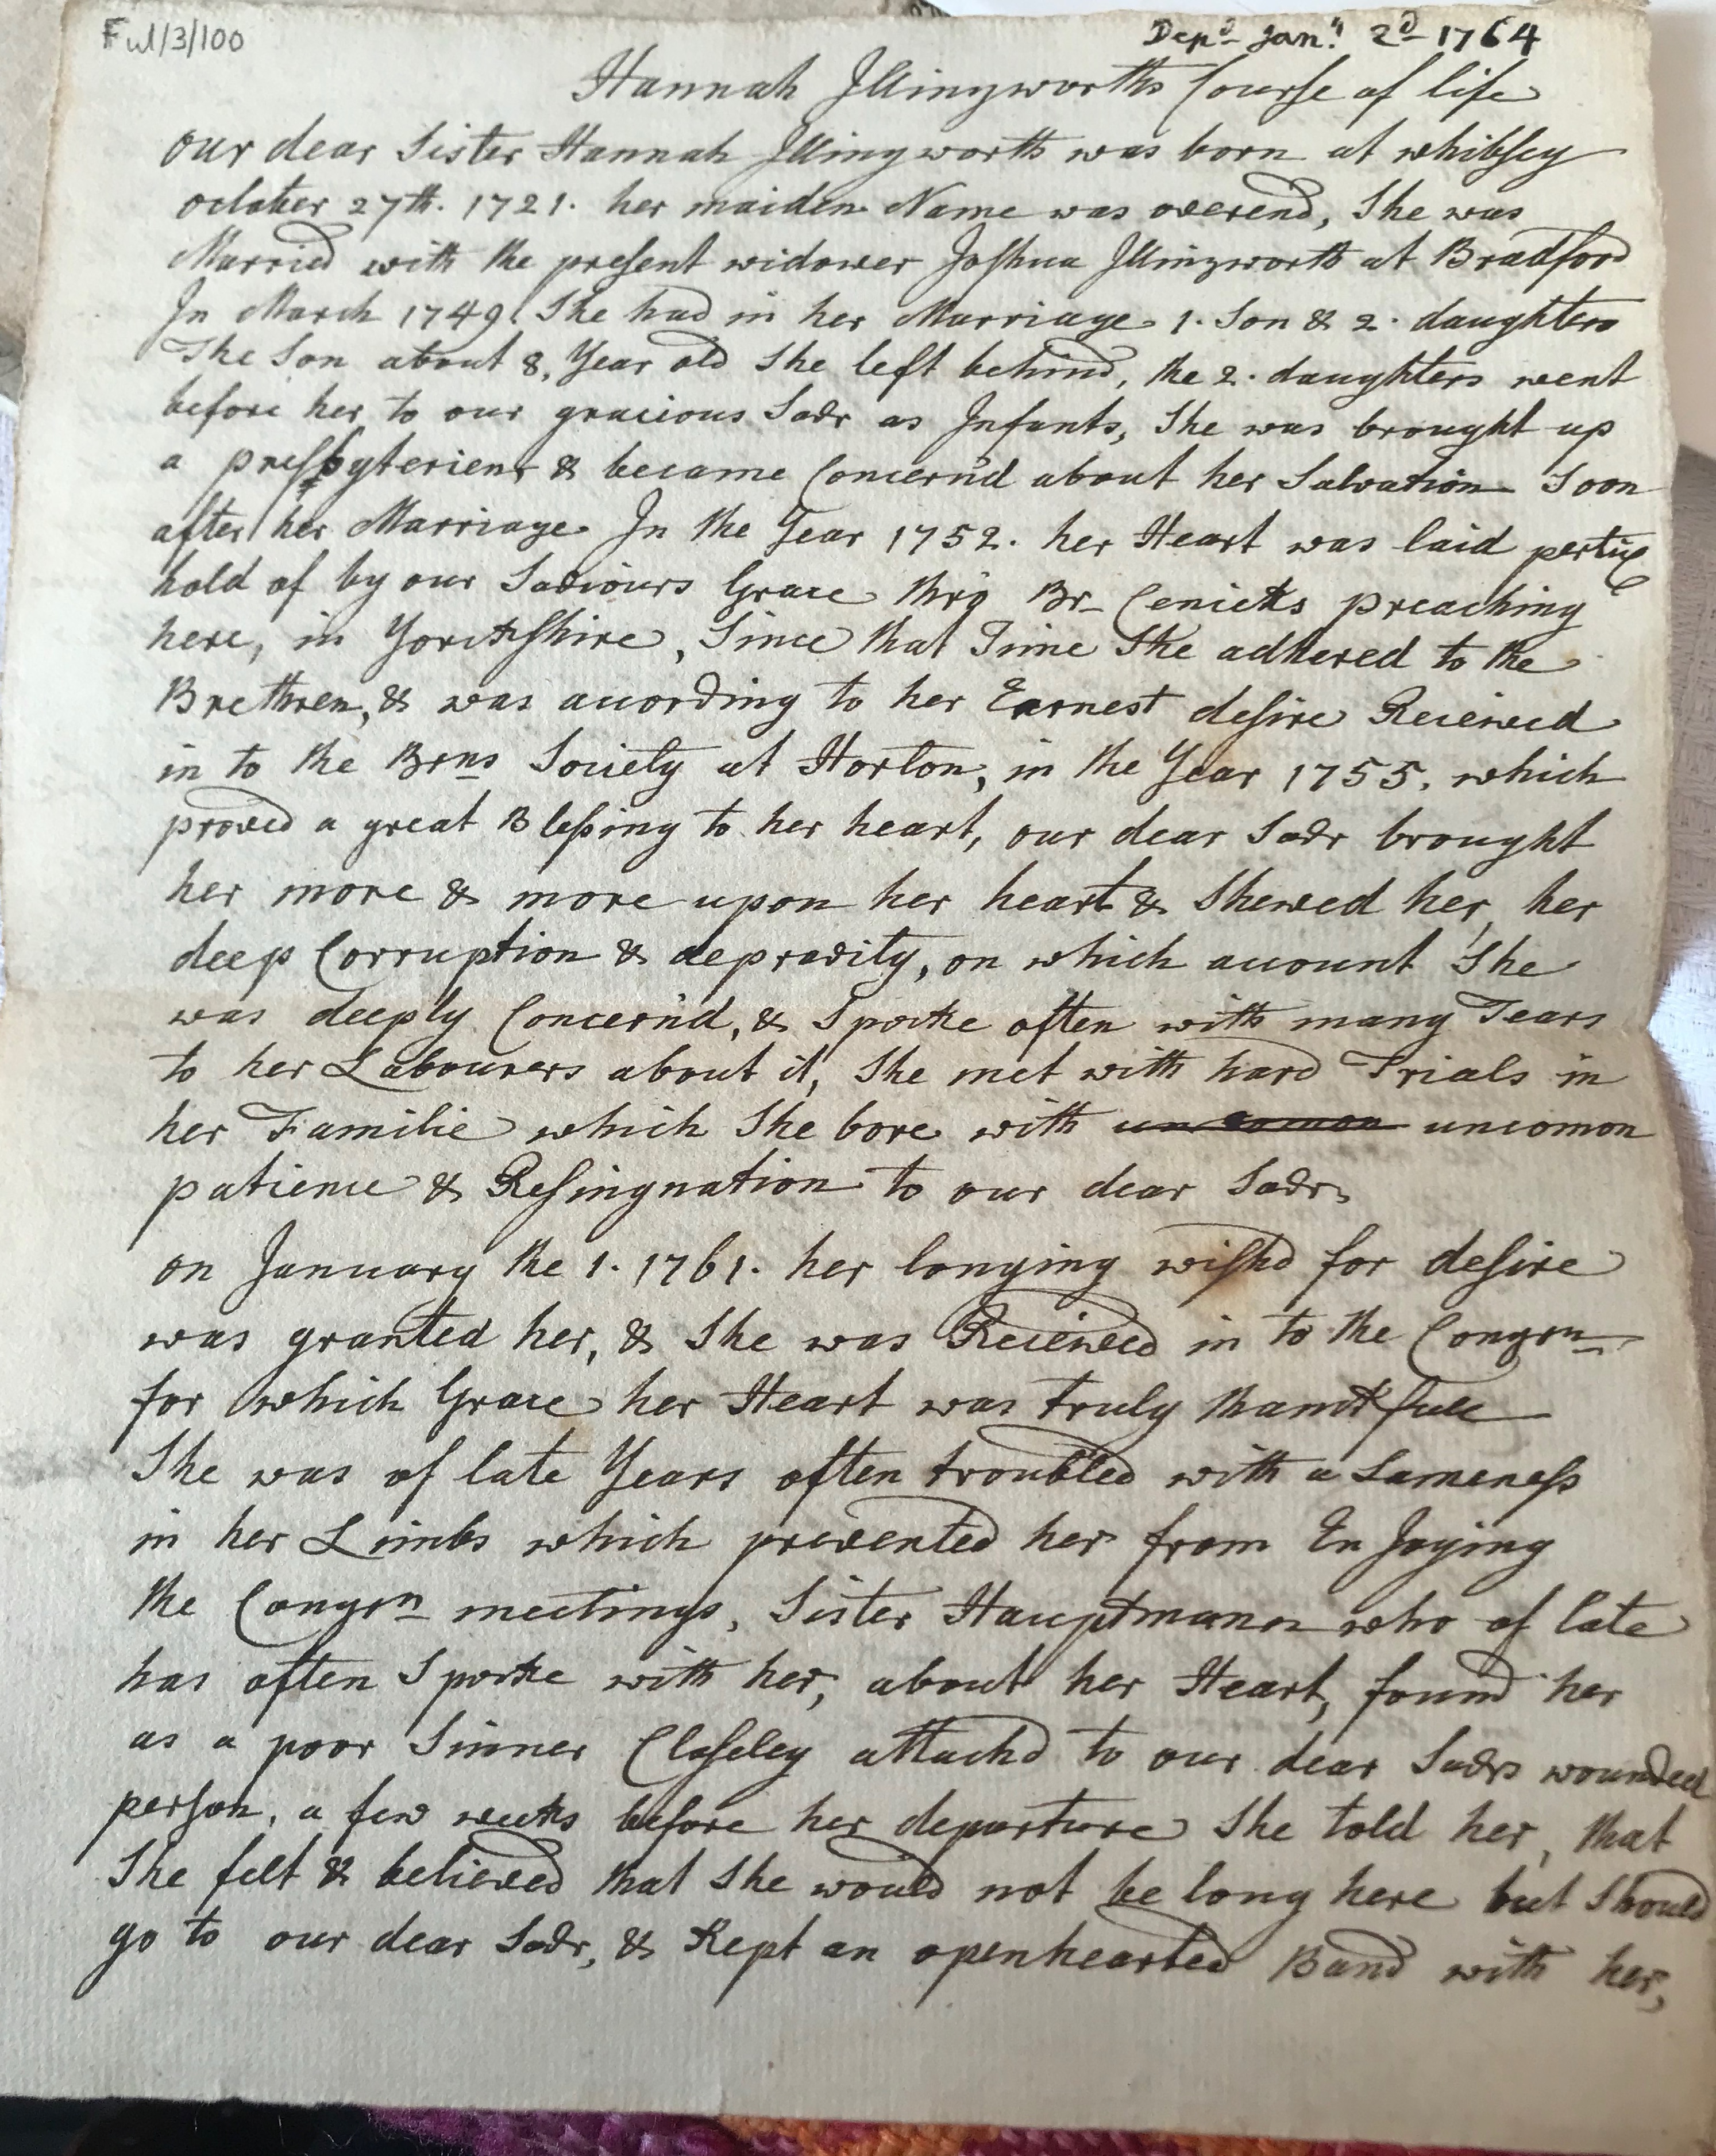 Ful/3/100
Depd. Jany. 2d 1764
Hannah Illingworths Course of life
our dear Sister Hannah Illingworth was born at whibsey
october 27th. 1721. her maiden Name was overend, She was
Married with the present widower Joshua Illingworth at Bradford
In March 1749. She had in her Marriage 1. Son & 2. daughters
The Son about 8, Year old She left behind, the 2. daughters went
before her to our gracious Savr as Infants, She was brought up
a presbyterient & became Concern'd about her Salvation Soon
after her Marriage In the Year 1752. her Heart was laid
hold of by our Saviours Grace thro Br_ Cenicks preaching
here, in Yorkshire, Since that Time She adhered to the
Brethren, & was acording to her Earnest desire Receiwed
in to the Brns Society at Horton, in the Year 1755. which
proved a great Blessing to her heart, our dear Savr brought
her more & more upon her heart & Shewed her, her
deep Corruption & depravity, on which acount She
was deeply Concern'd, & Spoke often with many Tears
to her Labourers about it, She met with hard Trials in
her Familie which She bore with uncomon
patience & Resingnation to our dear Savr,
on January the 1. 1761. her longing wishd for desire
was granted her, & She was Receiwed in to the Congrn
for which Grace her Heart was truly thankfull
She was of late Years often troubled with a Lameness
in her Limbs which prevented her from EnJoying
the Congrn meetings, Sister Hauptmann who of late
has often Spoke with her, about her Heart, found her
as a poor Sinner Closeley attachd to our dear Savrs wounded
person, a few weeks before her departure She told her, that
She felt & believed that She would not be long here but Should
go to our dear Savr, & Kept an openhearted Band with her,